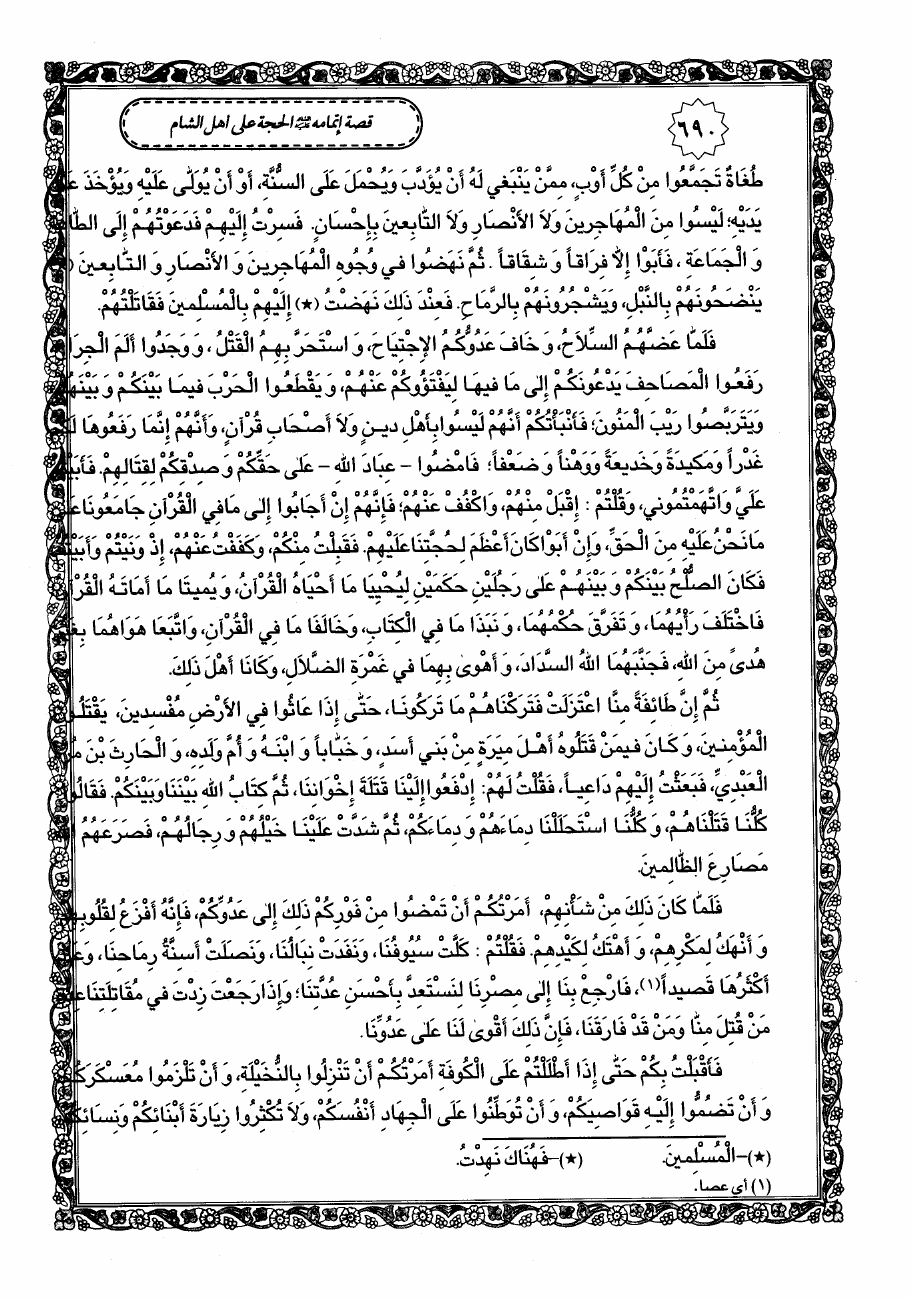 ٦٩٠
قصة إتمامه الحجة على اهل الشام
طُغَاةٌ تَجَمَّعُوا مِنْ كُلِّ أَوْبٍ، مِمَّنْ يَنْبَغِي لَهُ أَنْ يُؤَدَّبَ وَيُحْمَلَ عَلَى السُّنَّةِ، أَوْ أَنْ يُوَلّٰى عَلَيْهِ وَيُؤْخَذَ
يَدَيْهِ؛ لَيْسُوا مِنَ الْمُهَاجِرينَ وَلاَ الأَنْصَارِ وَلاَ التَّابِعينَ بِإِحْسَانٍ. فَسِرْتُ إِلَيْهِمْ فَدَعَوْتُهُمْ إِلَى
وَ الْجَمَاعَةِ، فَأَبَوْا إِلاَّ فِرَاقاً وَ شِقَاقاً. ثُمَّ نَهَضُوا في وُجُوهِ الْمُهَاجِرينَ وَ الأَنْصَارِ وَ التَّابِعينَ
يَنْضَحُونَهُمْ بِالنَّبْلِ، وَيَشْجُرُونَهُمْ بِالرِّمَاحِ. فَعِنْدَ ذَلِكَ نَهَضْتُ (★) إِلَيْهِمْ بِالْمُسْلِمينَ فَقَاتَلْتُهُمْ.
فَلَمَّا عَضَّهُمُ السِّلاَحُ، وَ خَافَ عَدُوُّكُمُ الإِجْتِيَاحَ، وَ اسْتَحَرَّ بِهِمُ الْقَتْلُ، وَ وَجَدُوا أَلَمَ
رَفَعُوا الْمَصَاحِفَ يَدْعُونَكُمْ إِلى مَا فيهَا لِيَفْتَؤُوكُمْ عَنْهُمْ، وَ يَقْطَعُوا الْحَرْبَ فيمَا بَيْنَكُمْ وَ بَيْنَهُمْ
وَيَتَرَبَّصُوا رَيْبَ الْمَنُونَ؛ فَأَنْبَأْتُكُمْ أَنَّهُمْ لَيْسُوا بِأَهْلِ دينٍ وَلاَ أَصْحَابِ قُرْآنٍ، وَأَنَّهُمْ إِنَّمَا رَفَعُوهَا لَكُمْ
غَدْراً وَمَكيدَةً وَخَديعَةً وَوَهْناً وَ ضَعْفاً؛ فَامْضُوا - عِبَادَ اللهِ - عَلى حَقِّكُمْ وَ صِدْقِكُمْ لِقِتَالِهِمْ.
عَلَيَّ وَاتَّهَمْتُمُوني، وَقُلْتُمْ: إِقْبَلْ مِنْهُمْ، وَاكْفُفْ عَنْهُمْ؛ فَإِنَّهُمْ إِنْ أَجَابُوا إِلى مَا فِي الْقُرْآنِ جَامَعُونَا
مَا نَحْنُ عَلَيْهِ مِنَ الْحَقِّ، وَإِنْ أَبَوْا كَانَ أَعْظَمَ لِحُجَّتِنَا عَلَيْهِمْ. فَقَبِلْتُ مِنْكُمْ، وَكَفَفْتُ عَنْهُمْ، إِذْ وَنَيْتُمْ وَأَبَيْتُمْ
فَكَانَ الصُّلْحُ بَيْنَكُمْ وَ بَيْنَهُمْ عَلى رَجُلَيْنِ حَكَمَيْنِ لِيُحْيِيَا مَا أَحْيَاهُ الْقُرْآنُ، وَ يُميتَا مَا أَمَاتَهُ الْقُرْآنُ
فَاخْتَلَفَ رَأْيُهُمَا، وَ تَفَرَّقَ حُكْمُهُمَا، وَ نَبَذَا مَا فِي الْكِتَابِ، وَخَالَفَا مَا فِي الْقُرْآنِ، وَاتَّبَعَا هَوَاهُمَا
هُدىً مِنَ اللهِ، فَجَنَّبَهُمَا اللهُ السَّدَادَ، وَ أَهْوى بِهِمَا في غَمْرَةِ الضَّلاَلِ، وَكَانَا أَهْلَ ذَلِكَ.
ثُمَّ إِنَّ طَائِفَةً مِنَّا اعْتَزَلَتْ فَتَرَكْنَاهُمْ مَا تَرَكُونَا، حَتّٰى إِذَا عَاثُوا فِي الأَرْضِ مُفْسِدينَ، يَقْتُلُونَ
الْمُؤْمِنينَ، وَ كَانَ فيمَنْ قَتَلُوهُ أَهْلَ ميرَةٍ مِنْ بَني أَسَدٍ، وَ خَبَّاباً وَ ابْنَهُ وَ أُمَّ وَلَدِهِ، وَ الْحَارِثَ بْنَ
الْعَبْدِيِّ، فَبَعَثْتُ إِلَيْهِمْ دَاعِياً، فَقُلْتُ لَهُمْ: إِدْفَعُوا إِلَيْنَا قَتَلَةَ إِخْوَانِنَا، ثُمَّ كِتَابُ اللهِ بَيْنَنَا وَبَيْنَكُمْ. فَقَالُوا
كُلُّنَا قَتَلْنَاهُمْ، وَ كُلُّنَا اسْتَحْلَلْنَا دِمَاءَهُمْ وَ دِمَاءَكُمْ، ثُمَّ شَدَّتْ عَلَيْنَا خَيْلُهُمْ وَ رِجَالُهُمْ، فَصَرَعَهُمُ
مَصَارِعَ الظَّالِمينَ.
فَلَمَّا كَانَ ذَلِكَ مِنْ شَأْنِهِمْ، أَمَرْتُكُمْ أَنْ تَمْضُوا مِنْ فَوْرِكُمْ ذَلِكَ إِلى عَدُوِّكُمْ، فَإِنَّهُ أَفْزَعُ لِقُلُوبِهِمْ
وَ أَنْهَكُ لِمَكْرِهِمْ، وَ أَهْتَكُ لِكَيْدِهِمْ. فَقُلْتُمْ: كَلَّتْ سُيُوفُنَا، وَنَفَدَتْ نِبَالُنَا، وَنَصَلَتْ أَسِنَّةُ رِمَاحِنَا،
أَكْثَرُهَا قَصيداً(١)، فَارْجِعْ بِنَا إِلى مِصْرِنَا لِنَسْتَعِدَّ بِأَحْسَنِ عُدَّتِنَا؛ وَإِذَا رَجَعْتَ زِدْتَ في مُقَاتِلَتِنَا
مَنْ قُتِلَ مِنَّا وَمَنْ قَدْ فَارَقَنَا، فَإِنَّ ذَلِكَ أَقْوى لَنَا عَلى عَدُوِّنَا.
فَأَقْبَلْتُ بِكُمْ حَتّٰى إِذَا أَطْلَلْتُمْ عَلَى الْكُوفَةِ أَمَرْتُكُمْ أَنْ تَنْزِلُوا بِالنُّخَيْلَةِ، وَ أَنْ تَلْزَمُوا مُعَسْكَرَكُمْ
وَ أَنْ تَضُمُّوا إِلَيْهِ قَوَاصِيَكُمْ، وَ أَنْ تُوَطِّنُوا عَلَى الْجِهَادِ أَنْفُسَكُمْ، وَلاَ تُكْثِرُوا زِيَارَةَ أَبْنَائِكُمْ وَنِسَائِكُمْ
(★)-الْمُسْلِمينَ. (★)-فَهُنَاكَ نَهَدْتُ.
(١) أي عصا.